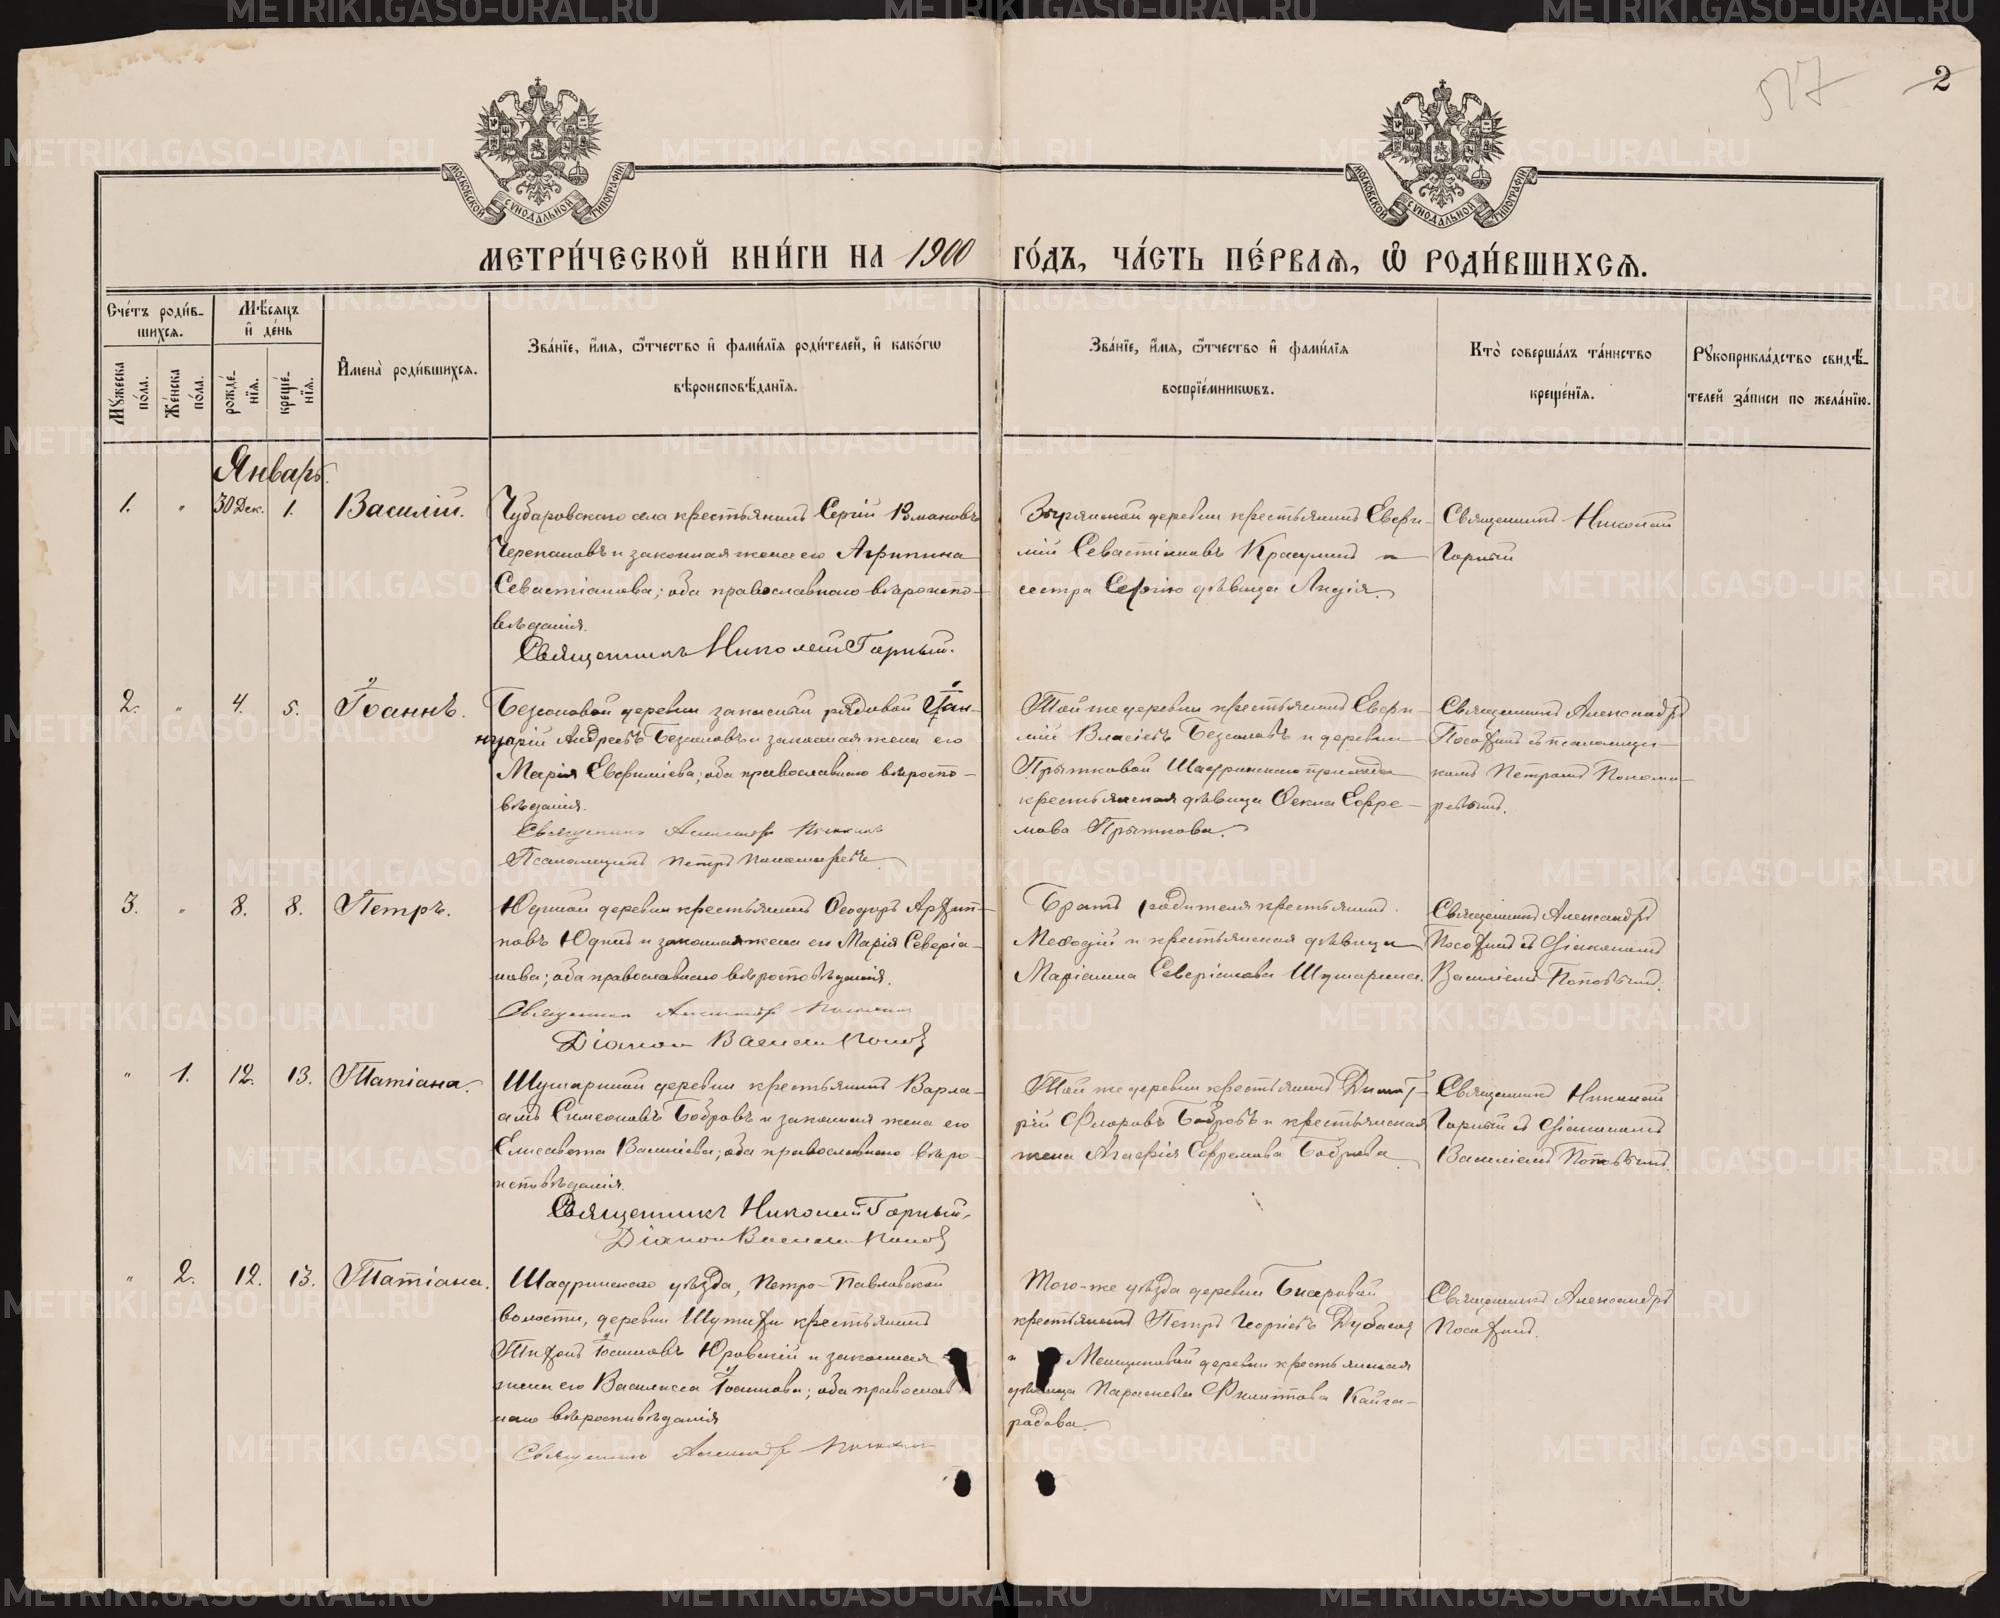 517
2
МОСКОВСКОЙ СѴНОДАЛЬНОЙ ТИПОГРАФІИ
МОСКОВСКОЙ СѴНОДАЛЬНОЙ ТИПОГРАФІИ
МЕТРИ́ЧЕСКОЙ КНИ́ГИ НА 1900 ГО́ДЪ, ЧА́СТЬ ПЕ́РВАѦ, Ѡ҆ РОДИ́ВШИХСѦ.
Сче́тъ роди́в-
шихсѧ.
Мꙋ́жеска по́ла.
Же́нска по́ла.
Мѣ́сѧцъ
и҆ де́нь
рожде́-
нїѧ.
креще́-
нїѧ.
И҆мена̀ роди́вшихсѧ.
Зва́нїе, и҆́мѧ, ѻ҆́тчество и҆ фами́лїѧ роди́телей, и҆ како́гѡ
вѣроисповѣ́данїѧ.
Зва́нїе, и҆́мѧ, ѻ҆́тчество и҆ фами́лїѧ
воспрїе́мникѡвъ.
Кто̀ соверша́лъ та́инство
креще́нїѧ.
Рꙋкоприкла́дство свидѣ́-
телей за́писи по жела́нїю.
Январь.
1. " 30 Дек. 1. Василій.
Чубаровскаго села крестьянинъ Сергій Романовъ
Черепановъ и законная жена его Агрипина
Севастіанова; оба православнаго вѣроиспо-
вѣданія.
Священникъ Николай Горный.
Зырянской деревни крестьянинъ Евфи-
мій Севастіановъ Красулинъ и
сестра Сергію дѣвица Лидія.
Священникъ Николай
Горный
2. " 4. 5. Іоаннъ.
Безсоновой деревни запасный рядовой Іан-
нуарій Андреевъ Безсоновъ и законная жена его
Марія Евфиміева; оба православнаго вѣроиспо-
вѣданія.
Священникъ Александръ
Псаломщикъ Петръ Пономаревъ
Той же деревни крестьянинъ Евфи-
мій Власіевъ Безсоновъ и деревни
Прытковой Шадринскаго уѣзда
крестьянская дѣвица Ѳекла Ефре-
мова Прыткова.
Священникъ Александръ
Посохинъ съ псаломщи-
комъ Петромъ Понома-
ревымъ.
3. " 8. 8. Петръ.
Юдиной деревни крестьянинъ Ѳеодоръ Архип-
повъ Юдинъ и законная жена его Марія Северіа-
нова; оба православнаго вѣроисповѣданія.
Священникъ Александръ
Діаконъ Василій Поповъ
Братъ родителя крестьянинъ
Меѳодій и крестьянская дѣвица
Маріанна Северіанова Шушарина.
Священникъ Александръ
Посохинъ съ діакономъ
Василіемъ Поповымъ.
" 1. 12. 13. Татіана.
Шушариной деревни крестьянинъ Варла-
амъ Симеоновъ Бобровъ и законная жена его
Елисавета Василіева; оба православнаго вѣро-
исповѣданія.
Священникъ Николай Горный.
Діаконъ Василій Поповъ
Той же деревни крестьянинъ Димит-
рій Флоровъ Бобровъ и крестьянская
жена Агафія Ефремова Боброва
Священникъ Николай
Горный съ діакономъ
Василіемъ Поповымъ.
" 2. 12. 13. Татіана.
Шадринскаго уѣзда, Петро-Павловской
волости, деревни Шутихи крестьянинъ
Тихонъ Іоанновъ Юровскій и законная
жена его Василисса Іоаннова; оба православ-
наго вѣроисповѣданія
Священникъ Александръ
Того-же уѣзда деревни
крестьянинъ Петръ Георгіевъ
и Мещиковой деревни крестьянская
дѣвица Параскева Филиппова Кайга-
родова.
Священникъ Александръ
Посохинъ.
METRIKI.GASO-URAL.RU